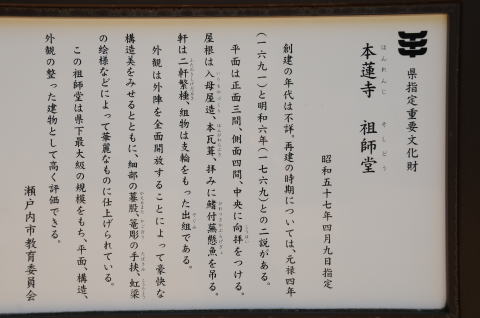 県指定重要文化財
本蓮寺　祖師堂
ほんれんじ　そしどう
昭和五十七年四月九日指定
創建の年代は不詳。再建の時期については、元禄四年
(一六九一)と明和六年(一七六九)との二説がある。
平面は正面三間、側面四間、中央に向拝をつける。
屋根は入母屋造、本瓦葺、拝みに鰭付蕪懸魚を吊る。
軒は二軒繁棰、組物は支輪をもった出組である。
外観は外陣を全面開放することによって豪快な
構造美をみせるとともに、細部の蟇股、篭彫の手挟、虹梁
の絵様などによって華麗なものに仕上げられている。
この祖師堂は県下最大級の規模をもち、平面、構造、
外観の整った建物として高く評価できる。
瀬戸内市教育委員会